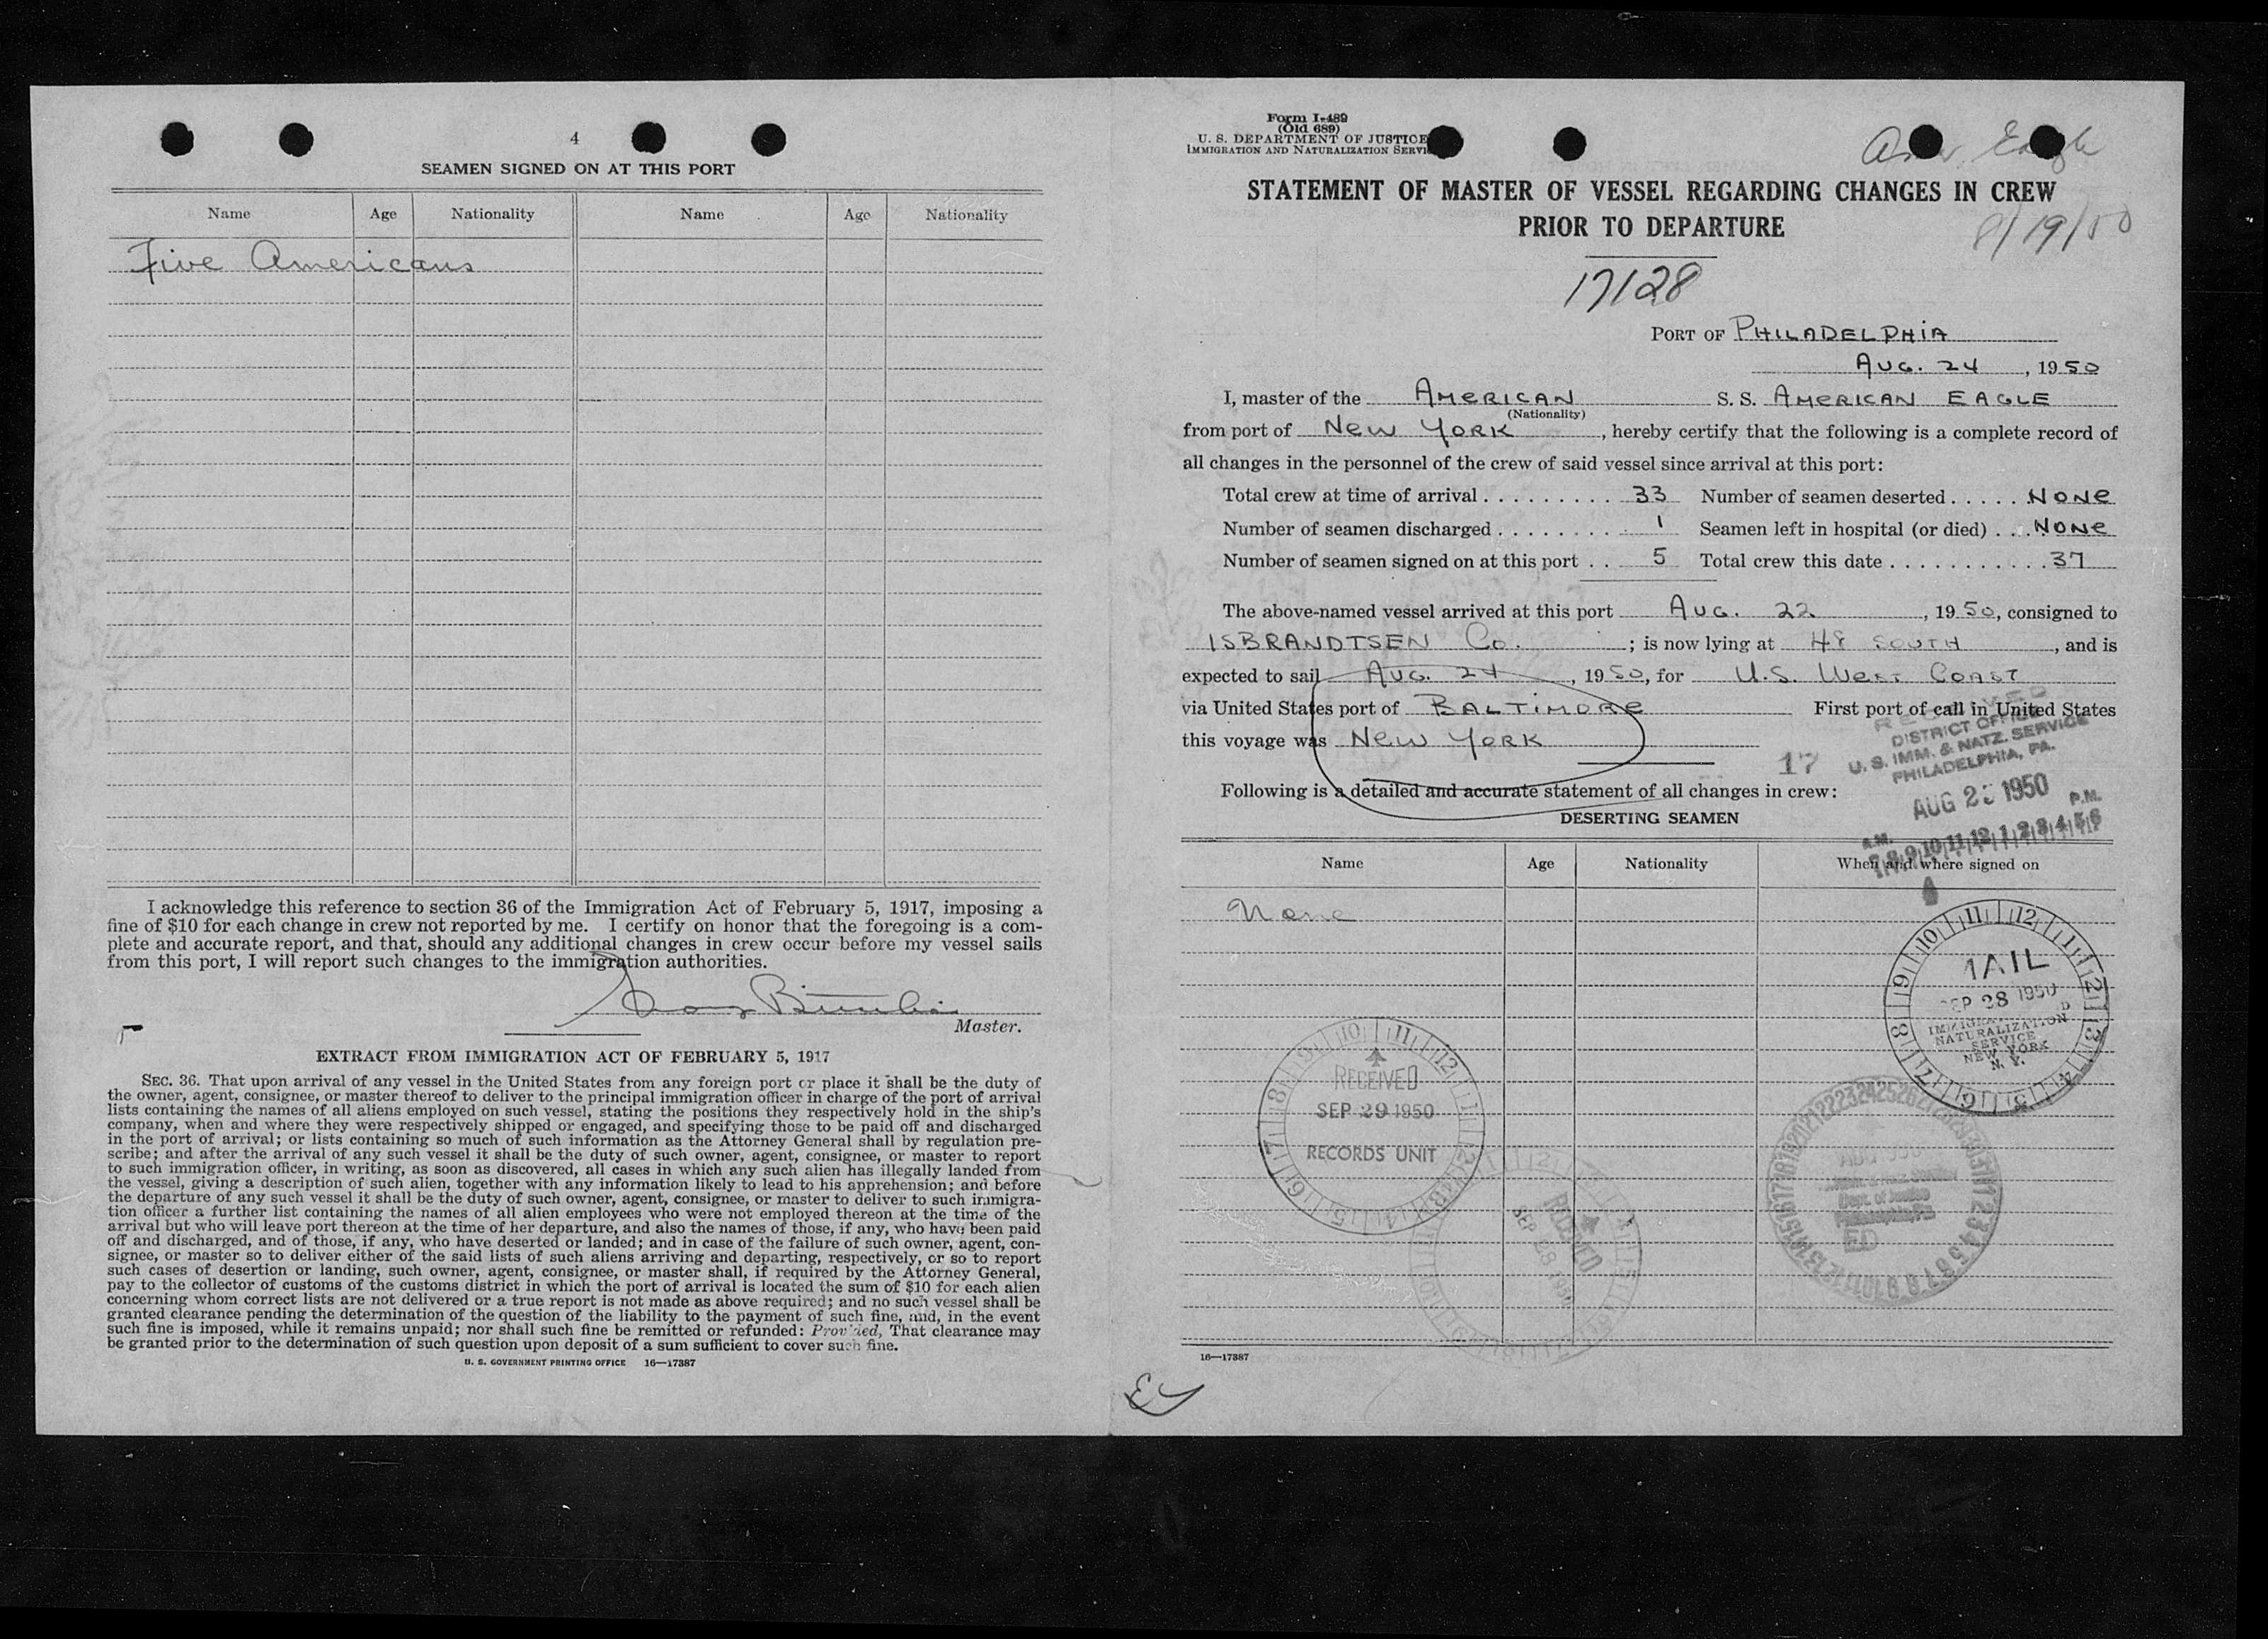 4
SEAMEN SIGNED ON AT THIS PORT
Name Age Nationality Name Age Nationality
Five Americans
I acknowledge this reference to section 36 of the Immigration Act of February 5, 1917, imposing a
fine of $10 for each change in crew not reported by me. I certify on honor that the foregoing is a com-
plete and accurate report, and that, should any additional changes in crew occur before my vessel sails
from this port, I will report such changes to the immigration authorities.
Master.
EXTRACT FROM IMMIGRATION ACT OF FEBRUARY 5, 1917
SEC. 36. That upon arrival of any vessel in the United States from any foreign port or place it shall be the duty of
the owner, agent, consignee, or master thereof to deliver to the principal immigration officer in charge of the port of arrival
lists containing the names of all aliens employed on such vessel, stating the positions they respectively hold in the ship's
company, when and where they were respectively shipped or engaged, and specifying those to be paid off and discharged
in the port of arrival; or lists containing so much of such information as the Attorney General shall by regulation pre-
scribe; and after the arrival of any such vessel it shall be the duty of such owner, agent, consignee, or master to report
to such immigration officer, in writing, as soon as discovered, all cases in which any such alien has illegally landed from
the vessel, giving a description of such alien, together with any information likely to lead to his apprehension; and before
the departure of any such vessel it shall be the duty of such owner, agent, consignee, or master to deliver to such immigra-
tion officer a further list containing the names of all alien employees who were not employed thereon at the time of the
arrival but who will leave port thereon at the time of her departure, and also the names of those, if any, who have been paid
off and discharged, and of those, if any, who have deserted or landed; and in case of the failure of such owner, agent, con-
signee, or master so to deliver either of the said lists of such aliens arriving and departing, respectively, or so to report
such cases of desertion or landing, such owner, agent, consignee, or master shall, if required by the Attorney General,
pay to the collector of customs of the customs district in which the port of arrival is located the sum of $10 for each alien
concerning whom correct lists are not delivered or a true report is not made as above required; and no such vessel shall be
granted clearance pending the determination of the question of the liability to the payment of such fine, and, in the event
such fine is imposed, while it remains unpaid; nor shall such fine be remitted or refunded: Provided, That clearance may
be granted prior to the determination of such question upon deposit of a sum sufficient to cover such fine.
U. S. GOVERNMENT PRINTING OFFICE 16—17387
Form I-489
(Old 689)
U. S. DEPARTMENT OF JUSTICE
IMMIGRATION AND NATURALIZATION SERVI
STATEMENT OF MASTER OF VESSEL REGARDING CHANGES IN CREW
PRIOR TO DEPARTURE
8/19/50
17128
PORT OF PHILADELPHIA
AUG. 24, 1950
I, master of the AMERICAN S. S. AMERICAN EAGLE
(Nationality)
from port of NEW YORK, hereby certify that the following is a complete record of
all changes in the personnel of the crew of said vessel since arrival at this port:
Total crew at time of arrival . . . . . . . . . 33 Number of seamen deserted . . . . . NONE
Number of seamen discharged . . . . . . . . 1 Seamen left in hospital (or died) . . . NONE
Number of seamen signed on at this port . . 5 Total crew this date . . . . . . . . . . . 37
The above-named vessel arrived at this port AUG. 22, 1950, consigned to
ISBRANDTSEN Co. ; is now lying at 48 SOUTH, and is
expected to sail AUG. 24, 1950, for U.S. WEST COAST
via United States port of BALTIMORE First port of call in United States
this voyage was NEW YORK
17
RECEIVED
DISTRICT OFFICE
U. S. IMM. & NATZ. SERVICE
PHILADELPHIA, PA.
AUG 1950
A.M. P.M.
7 8 9 10 11 12 1 2 3 4 5 6
Following is a detailed and accurate statement of all changes in crew:
DESERTING SEAMEN
Name Age Nationality When and where signed on
None
MAIL
SEP 28 1950
IMMIGRAT
NATURALIZATION
SERVICE
NEW YORK
N. Y.
RECEIVED
SEP 29 1950
RECORDS UNIT
RECEIVED
SEP 28 1950
Dept. of Justice
Philadelphia, Pa
16—17387